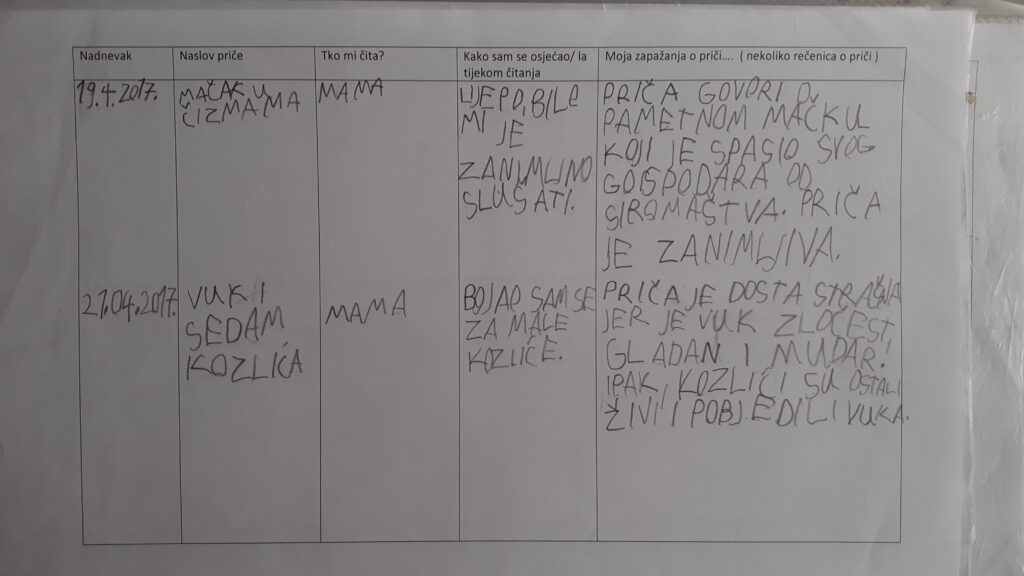 Nadnevak
Naslov priče
Tko mi čita?
Kako sam se osjećao/ la
tijekom čitanja
Moja zapažanja o priči.... ( nekoliko rečenica o priči )
19.4.2017.
MAČAK U
ČIZMAMA
MAMA
LIJEPO, BILO
MI JE
ZANIMLJIVO
SLUŠATI.
PRIČA GOVORI O
PAMETNOM MAČKU
KOJI JE SPASIO SVOG
GOSPODARA OD
SIROMAŠTVA. PRIČA
JE ZANIMLJIVA.
21.04.2017.
VUK I
SEDAM
KOZLIĆA
MAMA
BOJAO SAM SE
ZA MALE
KOZLIĆE.
PRIČA JE DOSTA STRAŠNA
JER JE VUK ZLOČEST,
GLADAN I MUDAR!
IPAK, KOZLIĆI SU OSTALI
ŽIVI I POBJEDILI VUKA.